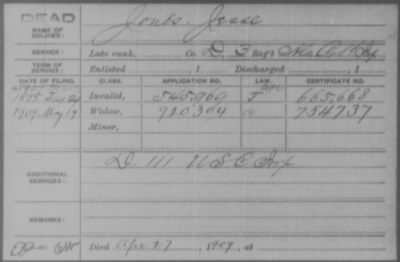 DEAD
NAME OF SOLDIER: Jones, Jesse
SERVICE: Late rank, Co. D, 3 Reg't
TERM OF SERVICE: Enlisted , 1 Discharged , 1
DATE OF FILING. CLASS. APPLICATION NO. LAW. CERTIFICATE NO.
1885 Invalid, 545,969 665,668
1909, May 17 Widow, 920304 754737
Minor,
ADDITIONAL SERVICES: D. 111 U S C Inf
REMARKS:
Died Apr 27, 1909, at